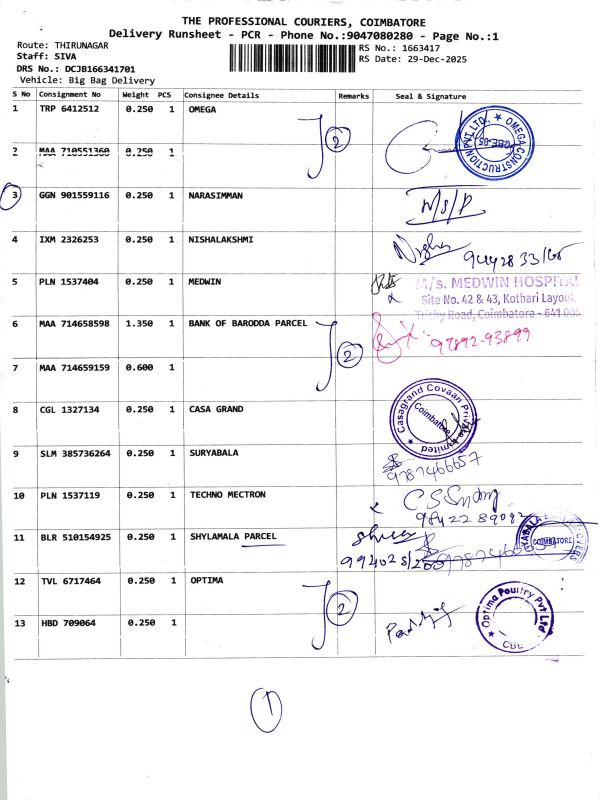 THE PROFESSIONAL COURIERS, COIMBATORE
Delivery Runsheet - PCR - Phone No.:9047080280 - Page No.:1
Route: THIRUNAGAR
RS No.: 1663417
Staff: SIVA
RS Date: 29-Dec-2025
DRS No.: DCJB166341701
Vehicle: Big Bag Delivery
S No Consignment No Weight PCS Consignee Details Remarks Seal & Signature
1 TRP 6412512 0.250 1 OMEGA
2
OMEGA CONSTRUCTION PVT LTD.
2 MAA 710551360 0.250 1
3 GGN 901559116 0.250 1 NARASIMMAN M/S/P
4 IXM 2326253 0.250 1 NISHALAKSHMI
5 PLN 1537404 0.250 1 MEDWIN
M/s. MEDWIN HOSPITAL
Site No. 42 & 43, Kothari Layout,
Trichy Road, Coimbatore - 641 005
6 MAA 714658598 1.350 1 BANK OF BARODDA PARCEL
2
97892-93899
7 MAA 714659159 0.600 1
8 CGL 1327134 0.250 1 CASA GRAND
Casagrand Covaan Private Limited
Coimbatore
9 SLM 385736264 0.250 1 SURYABALA
9787466657
10 PLN 1537119 0.250 1 TECHNO MECTRON
11 BLR 510154925 0.250 1 SHYLAMALA PARCEL
COIMBATORE
12 TVL 6717464 0.250 1 OPTIMA
2
Optima Poultry Pvt Ltd
CBE
13 HBD 709064 0.250 1
1